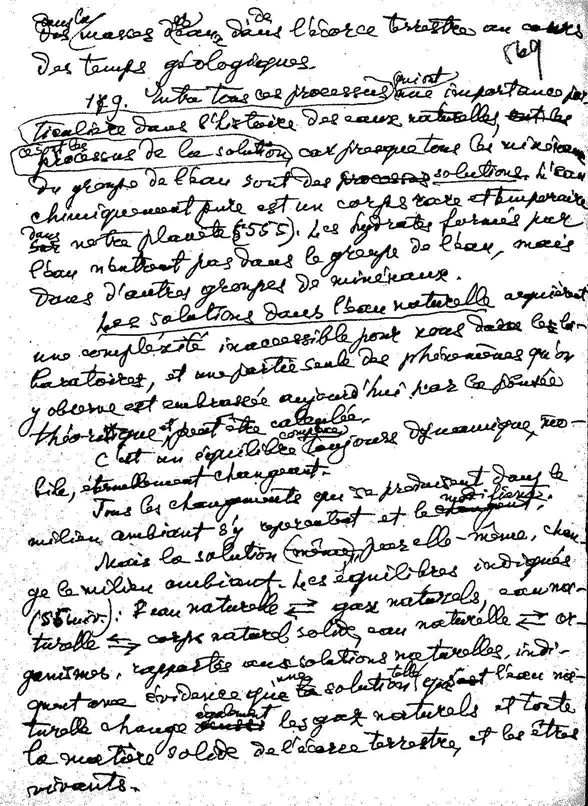 dans la
des masses d'eau, dans l'écorce terrestre au cours
des temps géologiques.
569
179. Entre tous ces processus, qui ont une importance par-
ticulière dans l'histoire des eaux naturelles, sont les
ce sont les
processus de la solution, car presque tous les minéraux
du groupe de l'eau sont des processus solutions. L'eau
chimiquement pure est un corps rare et temporaire
dans sur notre planète (§ 555). Les hydrates formés par
l'eau n'entrent pas dans le groupe de l'eau, mais
dans d'autres groupes de minéraux.
Les solutions dans l'eau naturelle acquièrent
une complexité inaccessible pour nous dans les la-
boratoires, et une partie seule des phénomènes qu'on
y observe est embrassée aujourd'hui par la pensée
théoritique et peut être calculée.
C'est un équilibre complexe toujours dynamique, mo-
bile, éternellement changeant.
Tous les changements qui se produisent dans le
milieu ambiant s'y et le modifient.
Mais la solution (même), par elle-même, chan-
ge le milieu ambiant. Les équilibres indiqués
(55 suiv.): Eau naturelle ⇄ gaz naturels, eau na-
turelle ⇆ corps naturel solide, eau naturelle ⇄ or-
ganismes, rapportés aux solutions naturelles, indi-
quent avec évidence que une la solution, telle qu'est l'eau na-
turelle change également les gaz naturels et toute
la matière solide de l'écorce terrestre, et les êtres
vivants.